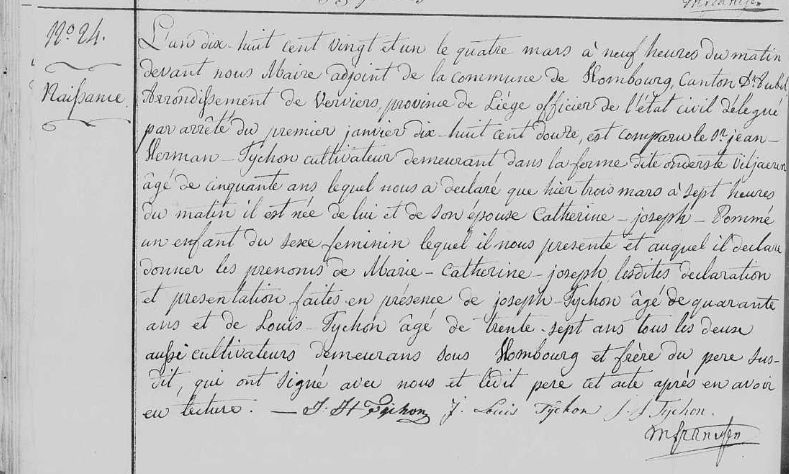 N.º 24.
Naissance
L'an dix-huit cent vingt et un le quatre mars à neuf heures du matin
devant nous Maire adjoint de la commune de Hombourg, Canton d'Aubel
Arrondissement de Verviers, province de Liége officier de l'état civil délégué
par arrêté du premier janvier dix-huit cent douze, est comparu le Sr. jean-
Herman-Tychon cultivateur demeurant dans la ferme dite onderste
âgé de cinquante ans lequel nous a declaré que hier trois mars à sept heures
du matin il est née de lui et de son épouse Catherine-joseph-Pommé
un enfant du sexe feminin lequel il nous presente et auquel il declare
donner les prenoms de Marie-Catherine-joseph, lesdites declaration
et presentation faites en présence de joseph-Tychon âgé de quarante
ans et de Louis-Tychon âgé de trente-sept ans tous les deux
aussi cultivateurs demeurans sous Hombourg et frère du pere sus-
dit, qui ont signé avec nous et ledit pere cet acte après en avoir
eu lecture. — J. H Tychon J. Louis Tychon J. J Tychon.